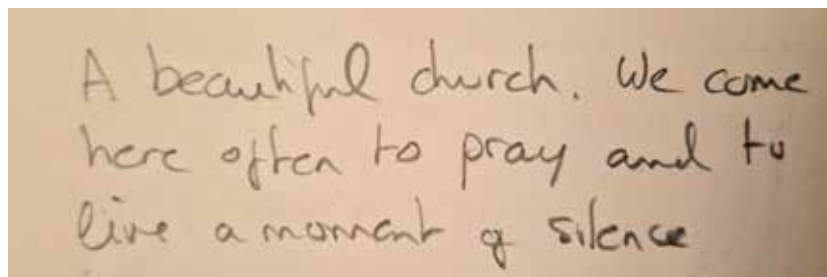 A beautiful church. We come
here often to pray and to
live a moment of silence